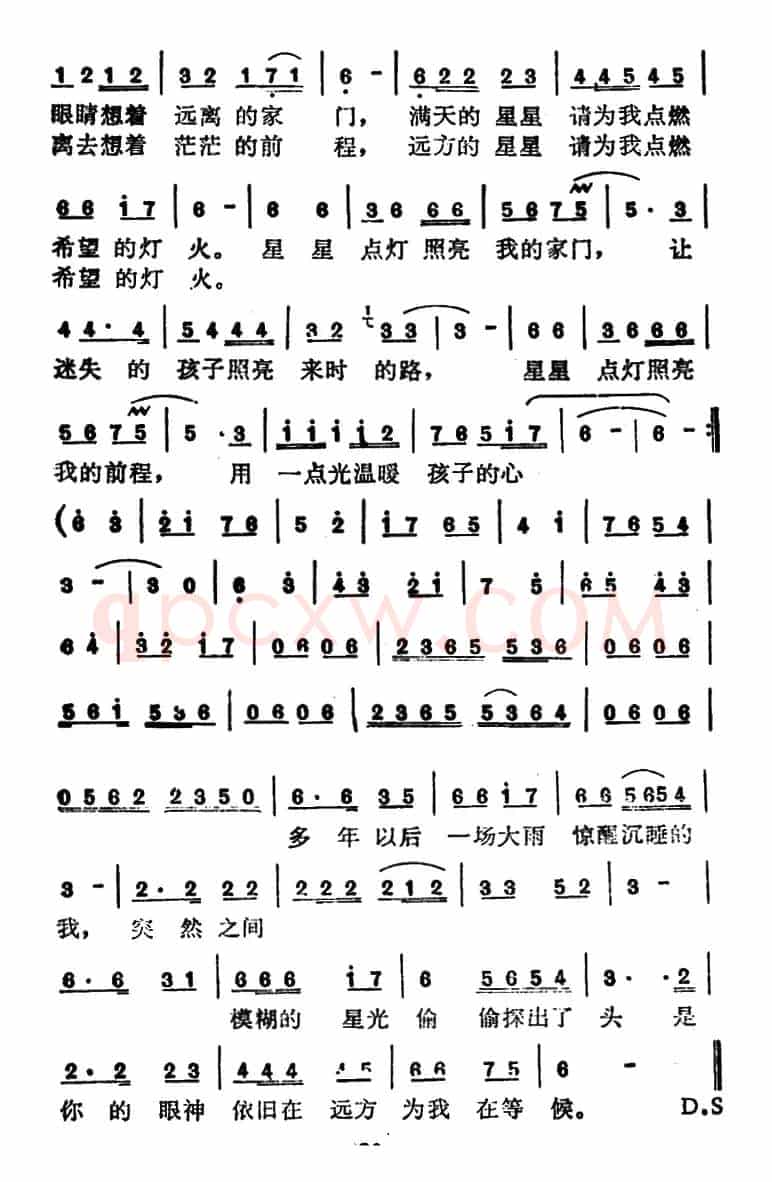 1 2 1 2 | 3 2 1 7 1 | 6 - | 6 2 2 2 3 | 4 4 5 4 5 |
眼睛想着 远离的家 门， 满天的星星 请为我点燃
离去想着 茫茫的前 程， 远方的星星 请为我点燃
6 6 i 7 | 6 - | 6 6 | 3 6 6 6 | 5 6 7 5 | 5 · 3 |
希望的灯 火。 星 星 点灯照亮 我的家门， 让
希望的灯 火。
4 4 · 4 | 5 4 4 4 | 3 2 3 3 | 3 - | 6 6 | 3 6 6 6 |
迷失 的 孩子照亮 来时 的路， 星星 点灯照亮
5 6 7 5 | 5 · 3 | i i i i 2 | 7 6 5 i 7 | 6 - | 6 - :||
我的前程， 用 一点光温暖 孩子的心
( 6 3 | 2 i 7 6 | 5 2 | i 7 6 5 | 4 i | 7 6 5 4 |
3 - | 3 0 | 6 3 | 4 3 2 i | 7 5 | 6 5 4 3 |
qpcxw.com
6 4 | 3 2 i 7 | 0 6 0 6 | 2 3 6 5 5 3 6 | 0 6 0 6 |
5 6 i 5 3 6 | 0 6 0 6 | 2 3 6 5 5 3 6 4 | 0 6 0 6 |
0 5 6 2 2 3 5 0 | 6 · 6 3 5 | 6 6 i 7 | 6 6 5 6 5 4 |
多 年 以后 一场大雨 惊醒沉睡的
3 - | 2 · 2 2 2 | 2 2 2 2 1 2 | 3 3 5 2 | 3 - |
我， 突 然 之间
6 · 6 3 1 | 6 6 6 i 7 | 6 5 6 5 4 | 3 · · 2 |
模糊的 星光 偷 偷探出了 头 是
2 · 2 2 3 | 4 4 4 4 5 | 6 6 7 5 | 6 - ||
你 的 眼神 依旧在 远方 为我 在等 候。 D.S